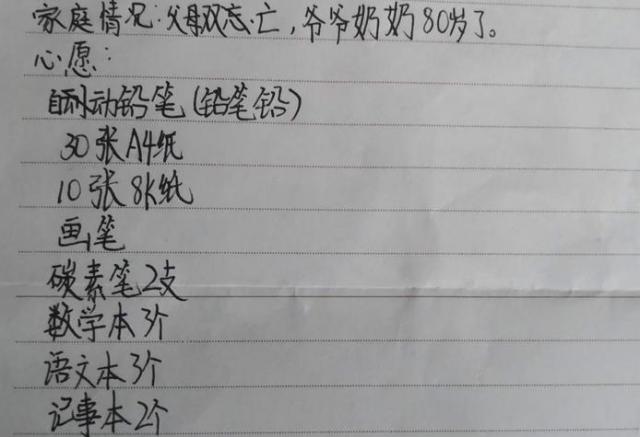 家庭情况:父母双忘亡,爷爷奶奶80岁了。
心愿:
自动铅笔(铅笔铅)
30张A4纸
10张8K纸
画笔
碳素笔2支
数学本3个
语文本3个
记事本2个